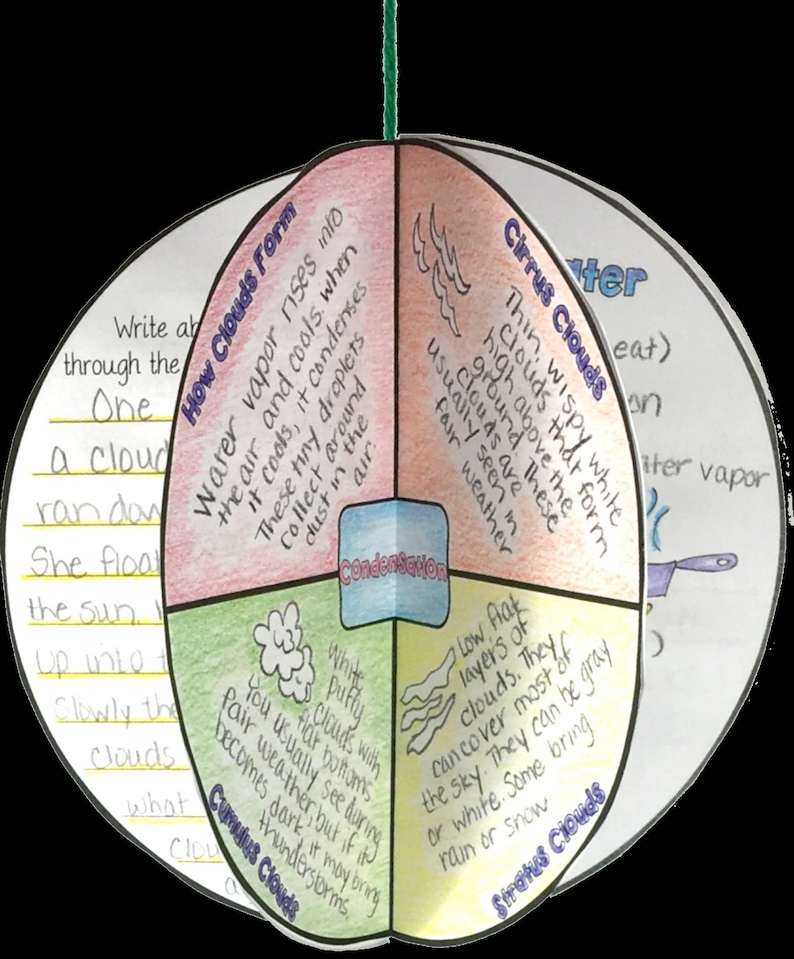 Write ab
through the
One
a cloud
ran dow
She float
the sun.
up into t
slowly the
clouds
what
clou
a
How Clouds Form
Water vapor rises into
the air and cools. when
it cools, it condenses
These tiny droplets
collect around
dust in the
air.
Cirrus Clouds
Thin, wispy white
clouds that form
high above the
ground. These
clouds are
usually seen in
fair weather
Condensation
White
puffy
clouds with
flat bottoms
You usually see during
fair weather, but if it
becomes dark it may bring
thunderstorms.
Cumulus Clouds
Low flat
layers of
clouds. They
can cover most of
the sky. They can be gray
or white. Some bring
rain or snow
Stratus Clouds
ater
eat)
on
ter vapor
)